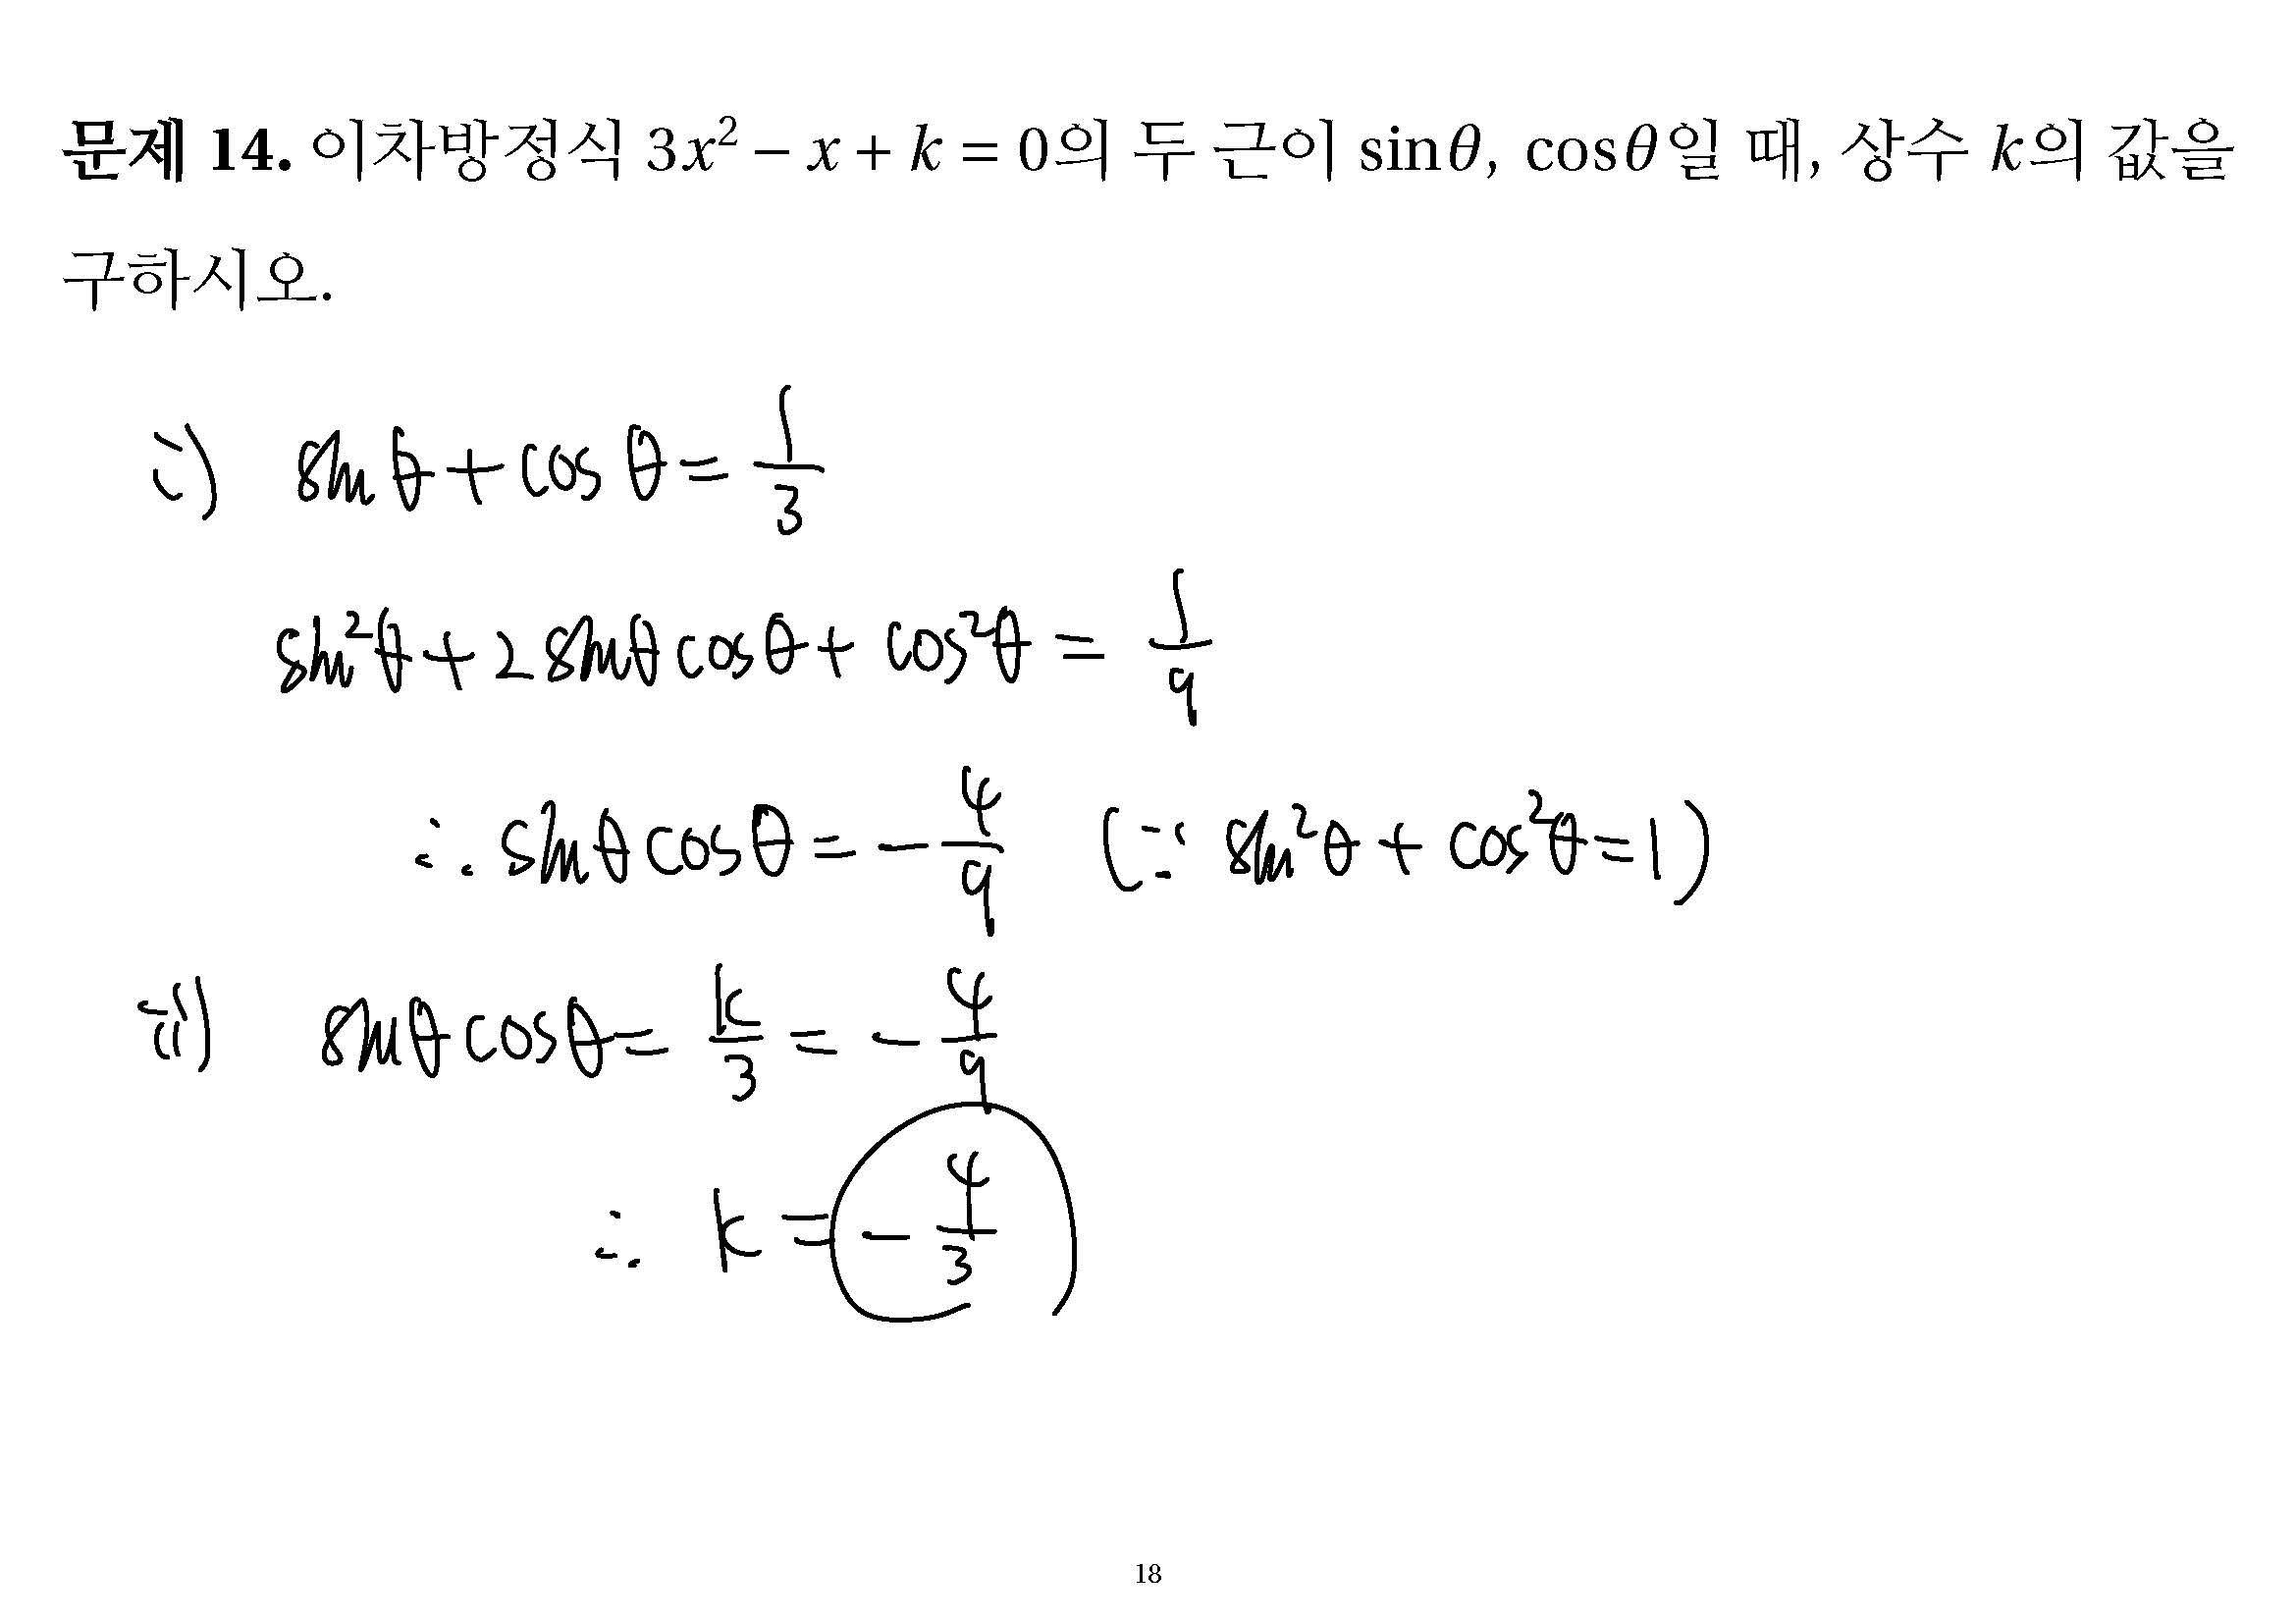 문제 14. 이차방정식 3x² − x + k = 0의 두 근이 sinθ, cosθ일 때, 상수 k의 값을
구하시오.
i) sin θ + cos θ = 1/3
sin²θ + 2 sinθ cosθ + cos²θ = 1/9
∴ sinθ cosθ = − 4/9 (∵ sin²θ + cos²θ = 1)
ii) sinθ cosθ = k/3 = − 4/9
∴ k = − 4/3
18